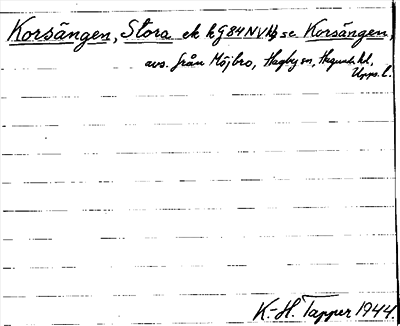 Korsängen, Stora ek kg 84 NV Hb se Korsängen,
avs. från Möjbro, Hagby sn, Hagunda hd,
Upps. l.
K-H. Tapper 1944.